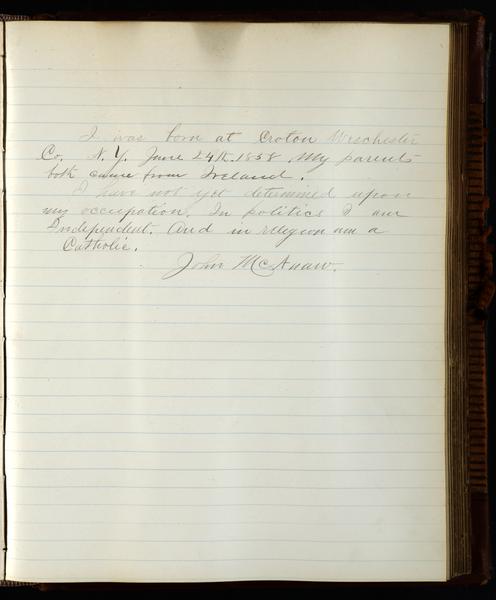 I was born at Croton Weschester
Co. N.Y. June 24th. 1858 My parents
both came from Ireland.
I have not yet determined upon
my occupation. In politics I am
Independent. And in religion am a
Catholic.
John McAnaw.